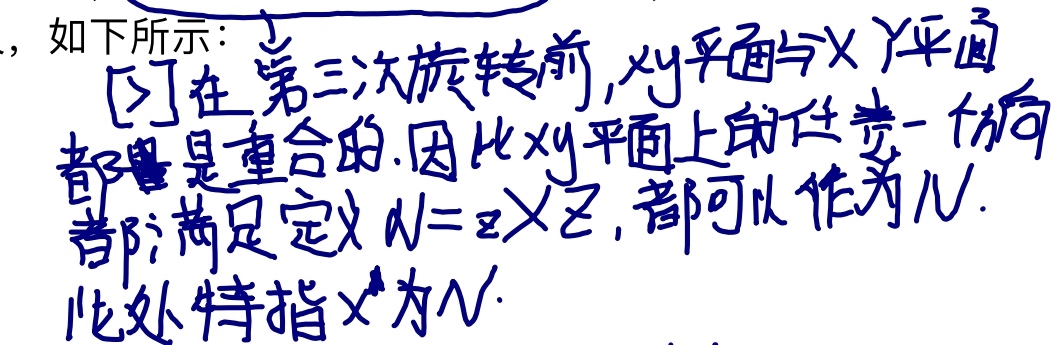 ，如下所示：
[>]在第三次旋转前,xy平面与XY平面
都是重合的.因此xy平面上的任意一方向
都满足定义N=z×Z,都可以作为N.
此处特指x为N.